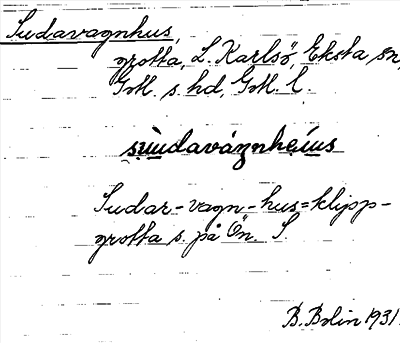 Sudavagnhus,
grotta, L. Karlsö, Eksta sn,
Gotl. s. hd, Gotl. l.
Sudar-vagn-hus=klipp-
grotta s. på Ön. S.
B. Bolin 1931.